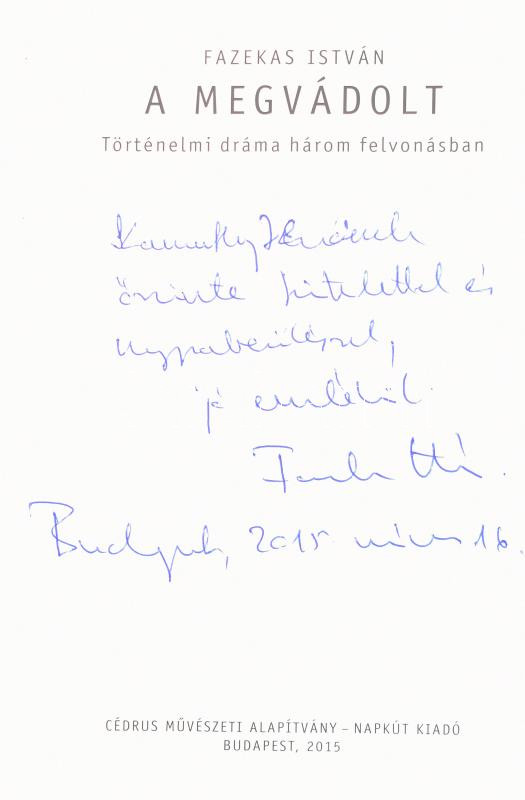 FAZEKAS ISTVÁN
A MEGVÁDOLT
Történelmi dráma három felvonásban
őszinte tisztelettel és
nagyrabecsüléssel,
jó emlékül
Budapest, 2015. 16.
CÉDRUS MŰVÉSZETI ALAPÍTVÁNY – NAPKÚT KIADÓ
BUDAPEST, 2015